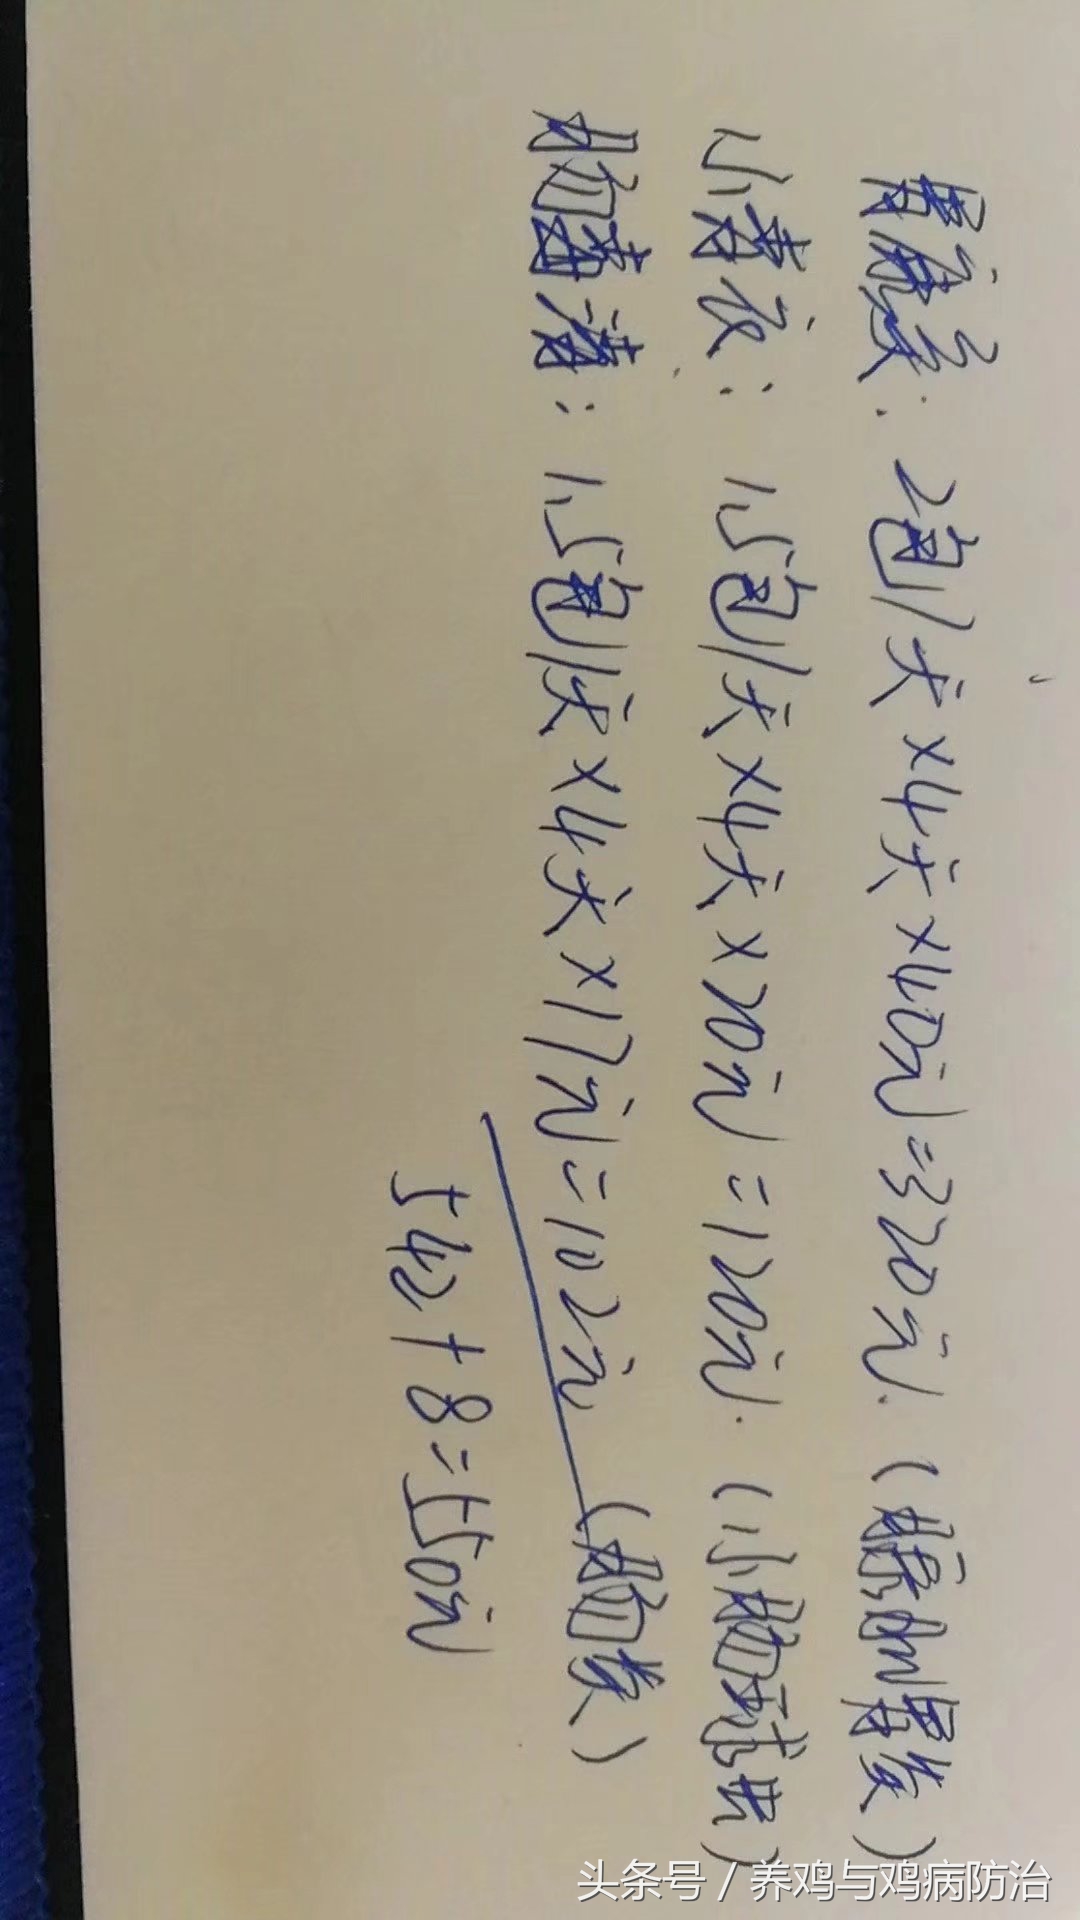 胃康灵：2包/天×4天×40元=320元.（腺肌胃炎）
小毒灭：1.5包/天×4天×20元=120元.（小肠球虫）
肠毒清：1.5包/天×4天×17元=102元（肠炎）
542+8=550元
头条号/养鸡与鸡病防治